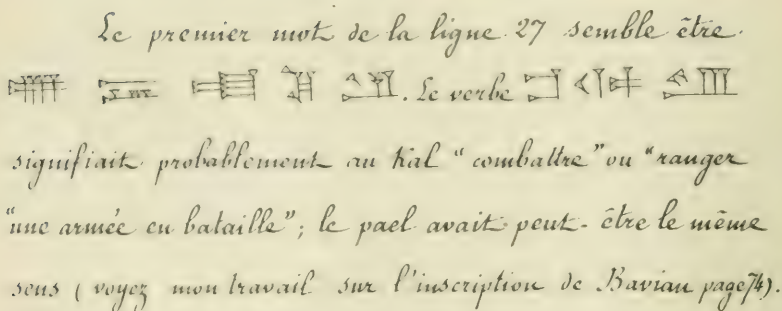 Le premier mot de la ligne 27 semble être
. Le verbe
signifiait probablement au kal "combattre" ou "ranger
"une armée en bataille"; le pael avait peut-être le même
sens (voyez mon travail sur l'inscription de Bavian page 74).